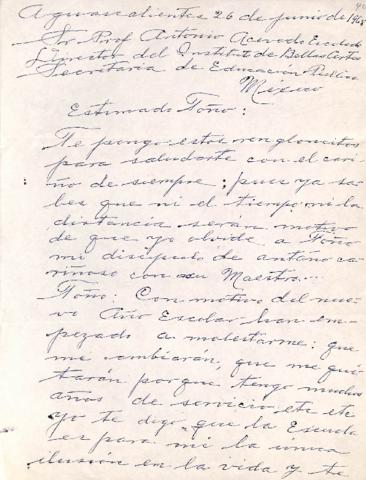 Aguascalientes 26 de junio de 1968
Sr. Prof Antonio Acevedo Escobedo
Director del Instituto de Bellas Artes
Secretaria de Educación Publica
Mexico
Estimado Toño:
Te pongo estos rengloncitos
para saludarte con el cari
ño de siempre; pues ya sa-
bes que ni el tiempo ni la
distancia seran motivo
de que yo olvide a Toño
mi discipulo de antaño ca-
riñoso con su Maestro...
Toño: Con motivo del nue-
vo Año Escolar han em-
pezado a molestarme: que
me cambiarán, que me qui
tarán porque tengo muchos
años de servicio etc etc
yo te digo que la Escuela
es para mi la unica
ilusión en la vida y te